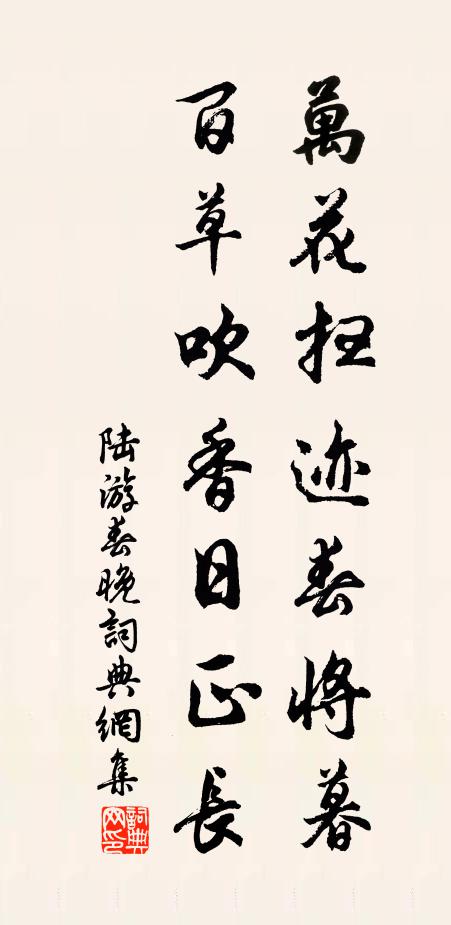 萬花掃迹春將暮
百草吹香日正長
陆游春晚詞典網集
詞典网印